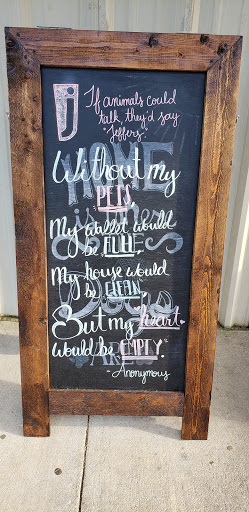 j
If animals could
talk, they'd say
"Jeffers".
Without my
PETS,
My wallet would
be FULL
My house would
be CLEAN,
But my heart
would be EMPTY."
- Anonymous